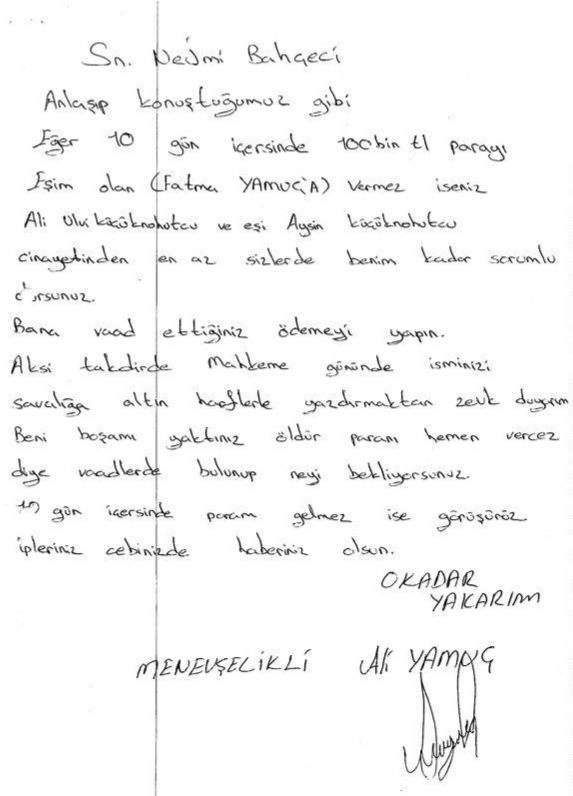 Sn. Necmi Bahçeci
Anlaşıp konuştuğumuz gibi
Eğer 10 gün içersinde 100bin tl parayı
Eşim olan (Fatma YAMUÇ'A) Vermez iseniz
Ali Ulvi küçüknohutcu ve eşi Aysin küçüknohutcu
cinayetinden en az sizlerde benim kadar sorumlu
olursunuz.
Bana vaad ettiğiniz ödemeyi yapın.
Aksi takdirde Mahkeme gününde isminizi
savcılığa altin harflerle yazdırmaktan zevk duyarım
Beni boşamı yaktınız öldür paranı hemen vercez
diye vaadlerde bulunup neyi bekliyorsunuz.
10 gün içersinde param gelmez ise görüşürüz
ipleriniz cebinizde haberiniz olsun.
OKADAR
YAKARIM
MENEVŞELİKLİ Ali YAMUÇ